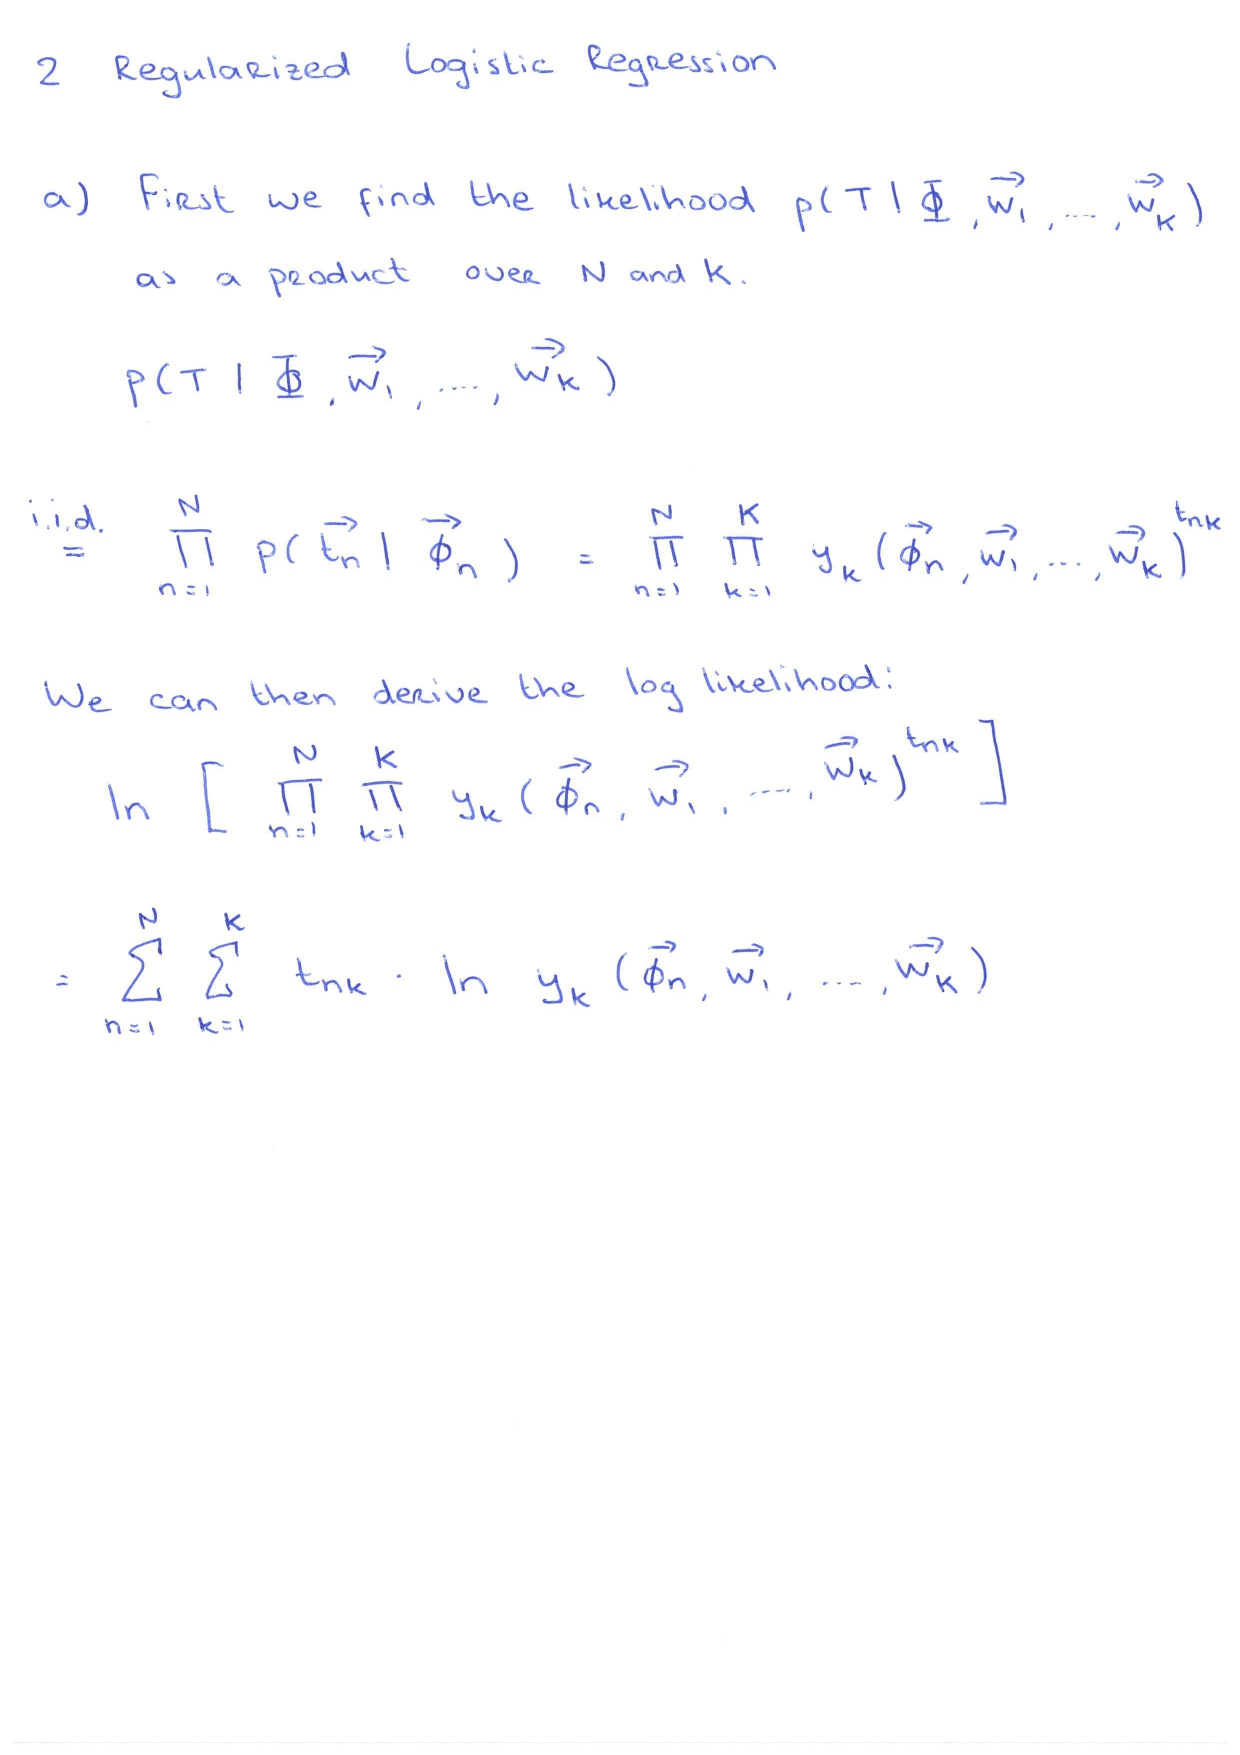 2 Regularized Logistic Regression
a) First we find the likelihood p(T | Φ, w⃗₁, ...., w⃗_K)
as a product over N and K.
p(T | Φ, w⃗₁, ...., w⃗_K)
i.i.d. = ∏_{n=1}^{N} p(t⃗_n | ϕ⃗_n) = ∏_{n=1}^{N} ∏_{k=1}^{K} y_k(ϕ⃗_n, w⃗₁, ..., w⃗_K)^{t_{nk}}
We can then derive the log likelihood:
ln [ ∏_{n=1}^{N} ∏_{k=1}^{K} y_k(ϕ⃗_n, w⃗₁, ...., w⃗_K)^{t_{nk}} ]
= ∑_{n=1}^{N} ∑_{k=1}^{K} t_{nk} · ln y_k(ϕ⃗_n, w⃗₁, ...., w⃗_K)